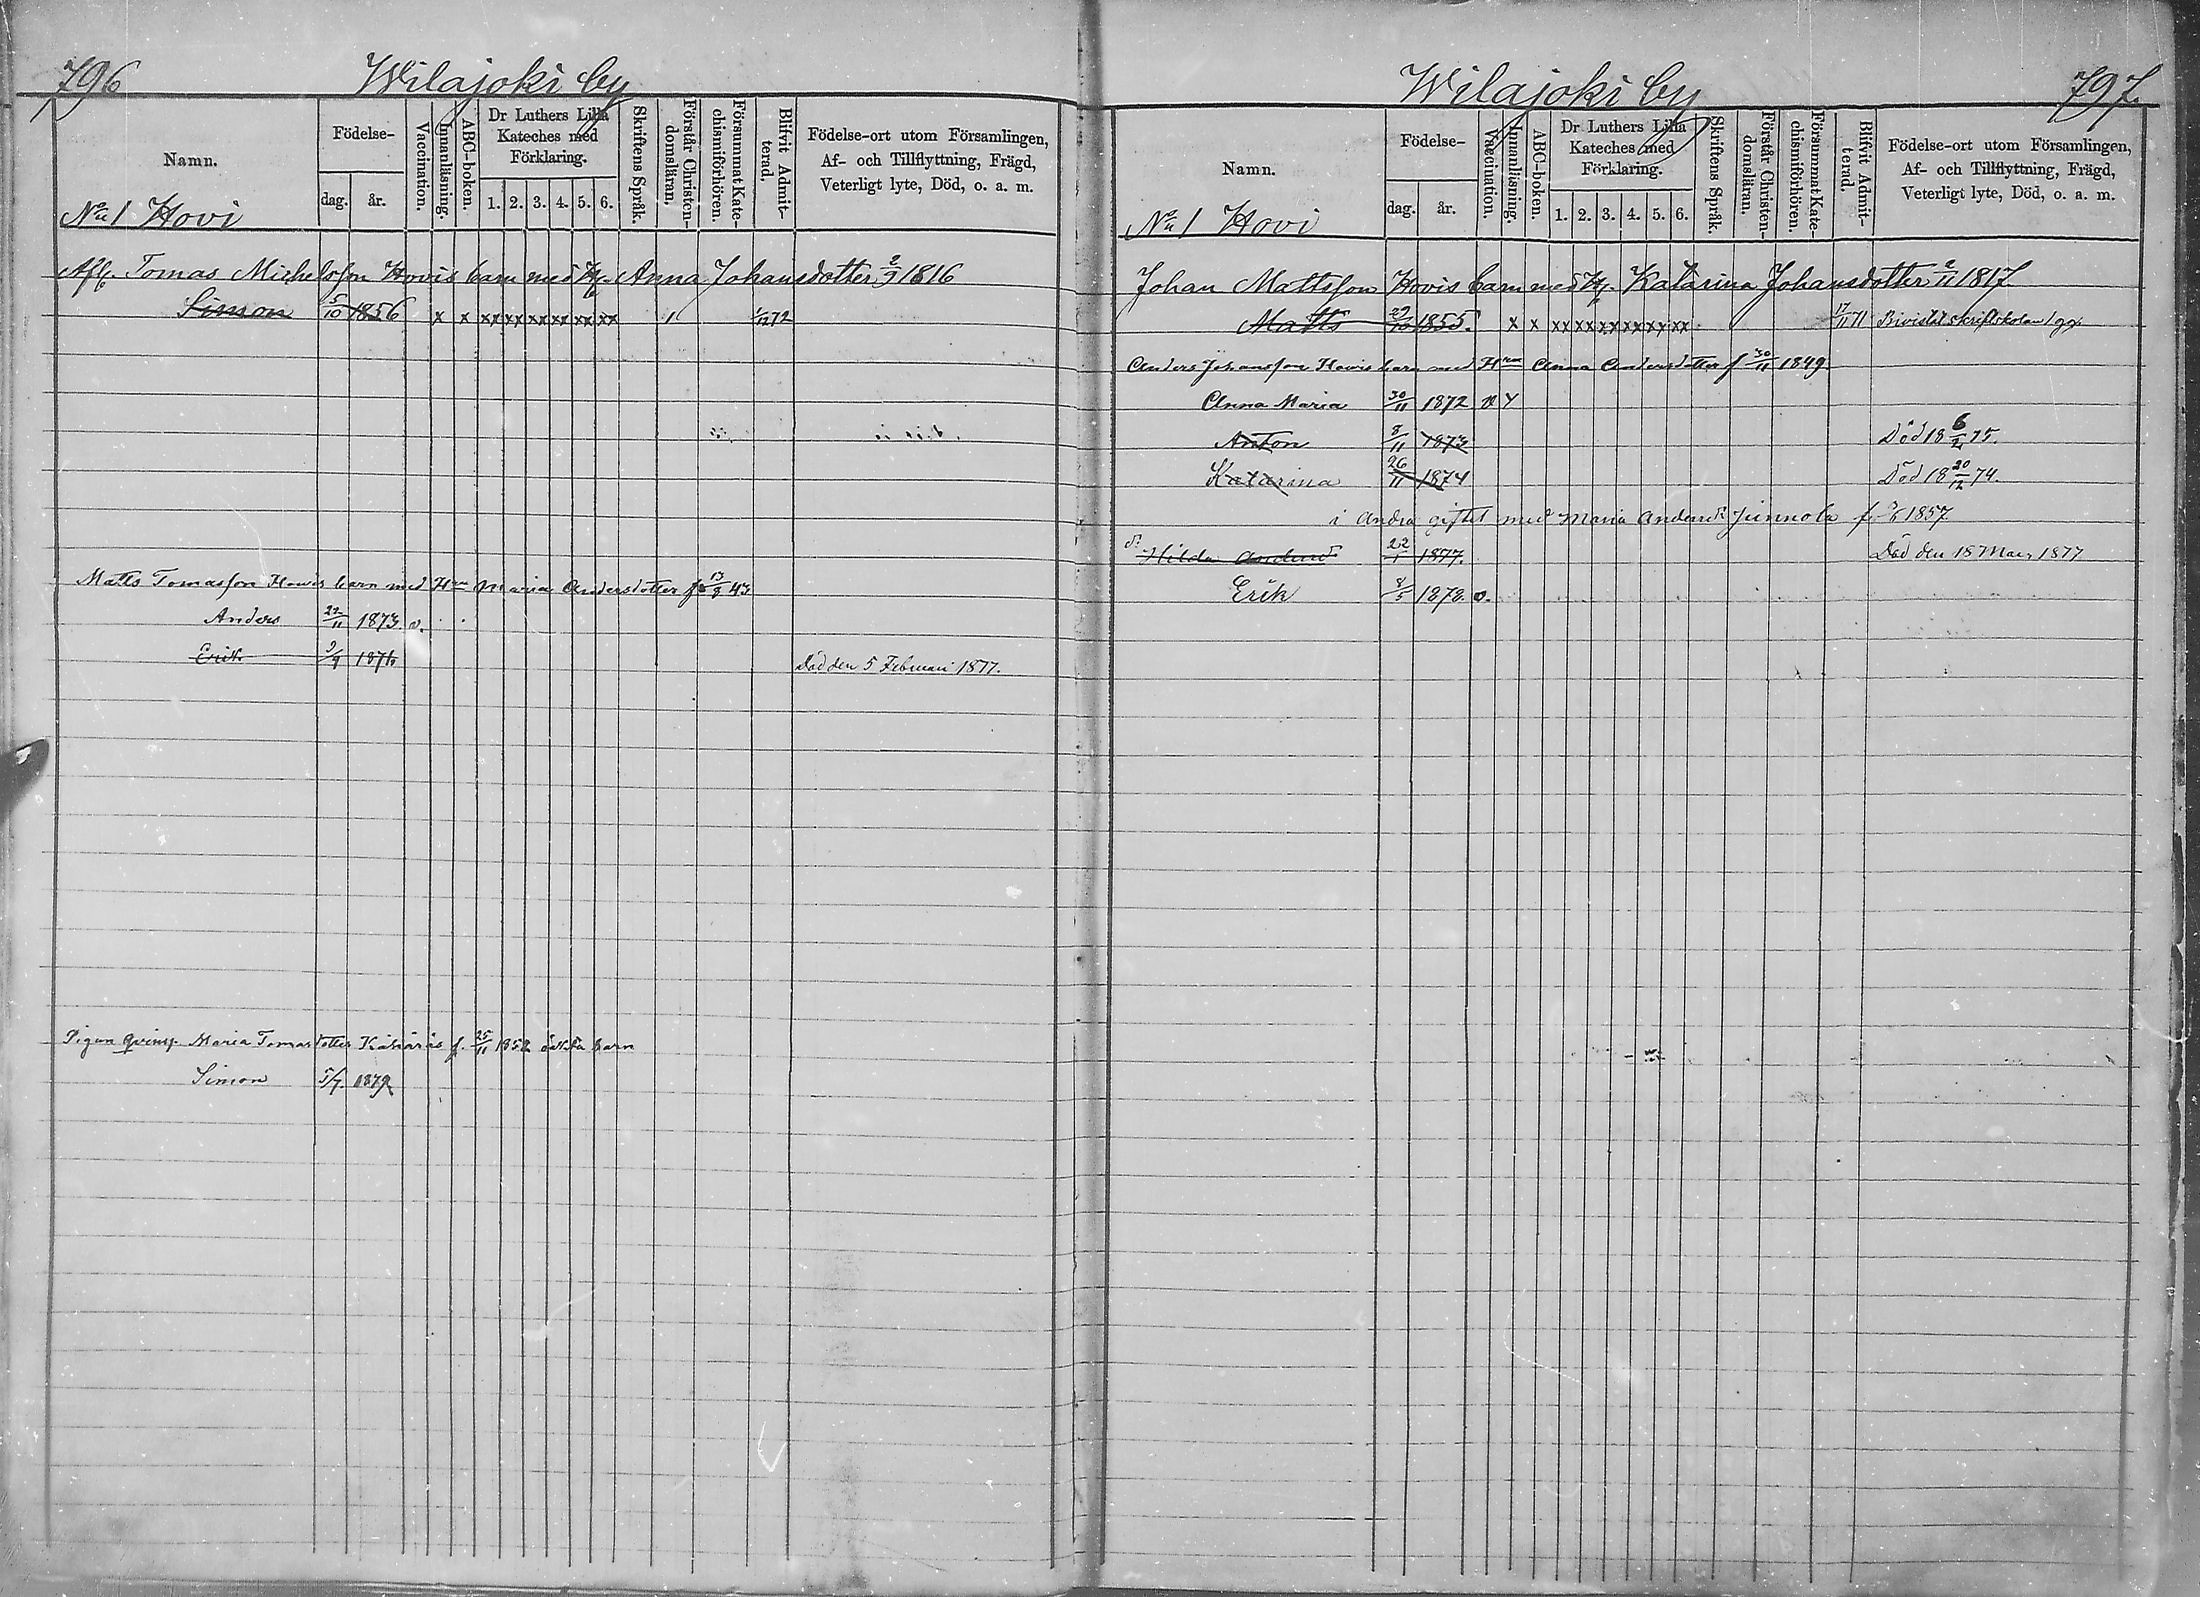 796
Wilajoki by
Namn.
Födelse-
dag.
år.
Vaccination.
Innanläsning.
ABC-boken.
Dr Luthers Lilla
Kateches med
Förklaring.
1. 2. 3. 4. 5. 6.
Skriftens Språk.
Förstår Christen-
domsläran.
Försummat Kate-
chismiförhören.
Blifvit Admit-
terad.
Födelse-ort utom Församlingen,
Af- och Tillflyttning, Frägd,
Veterligt lyte, Död, o. a. m.
No 1 Hovi
Afl. Tomas Michelsson Hovis barn med H. Anna Johansdotter 2/9 1816
Simon 5/10 1856 x x xx xx xx xx xx xx 1 1/12 72
Matts Tomasson Hovis barn med Hru Maria Andersdotter f 13/8 43
Anders 22/11 1873 v.
Erik 9/9 1876 Död den 5 Februari 1877.
Pigan Maria Tomasdotter f. 25/11 1852 barn
Simon 5/7. 1879
Wilajoki by
797.
Namn.
Födelse-
dag.
år.
Vaccination.
Innanläsning.
ABC-boken.
Dr Luthers Lilla
Kateches med
Förklaring.
1. 2. 3. 4. 5. 6.
Skriftens Språk.
Förstår Christen-
domsläran.
Försummat Kate-
chismiförhören.
Blifvit Admit-
terad.
Födelse-ort utom Församlingen,
Af- och Tillflyttning, Frägd,
Veterligt lyte, Död, o. a. m.
No 1 Hovi
Johan Mattsson Hovis barn med H. Katarina Johansdotter 2/11 1817.
Matts 29/10 1855. x x xx xx xx xx xx xx 17/11 71 Bivistat skriftskolan 1 gg.
Anders Johansson Hovis barn med Hru Anna Andersdotter f 30/11 1849.
Anna Maria 30/11 1872 v y
Anton 8/11 1873 Död 18 6/2 75.
Katarina 26/11 1874 Död 18 20/12 74.
i Andra giftet med Maria Andersd. Junnola f. 1857.
d. Hilda Andersd 22/1 1877. Död den 18 Mars 1877
Erik 8/5 1878. v.